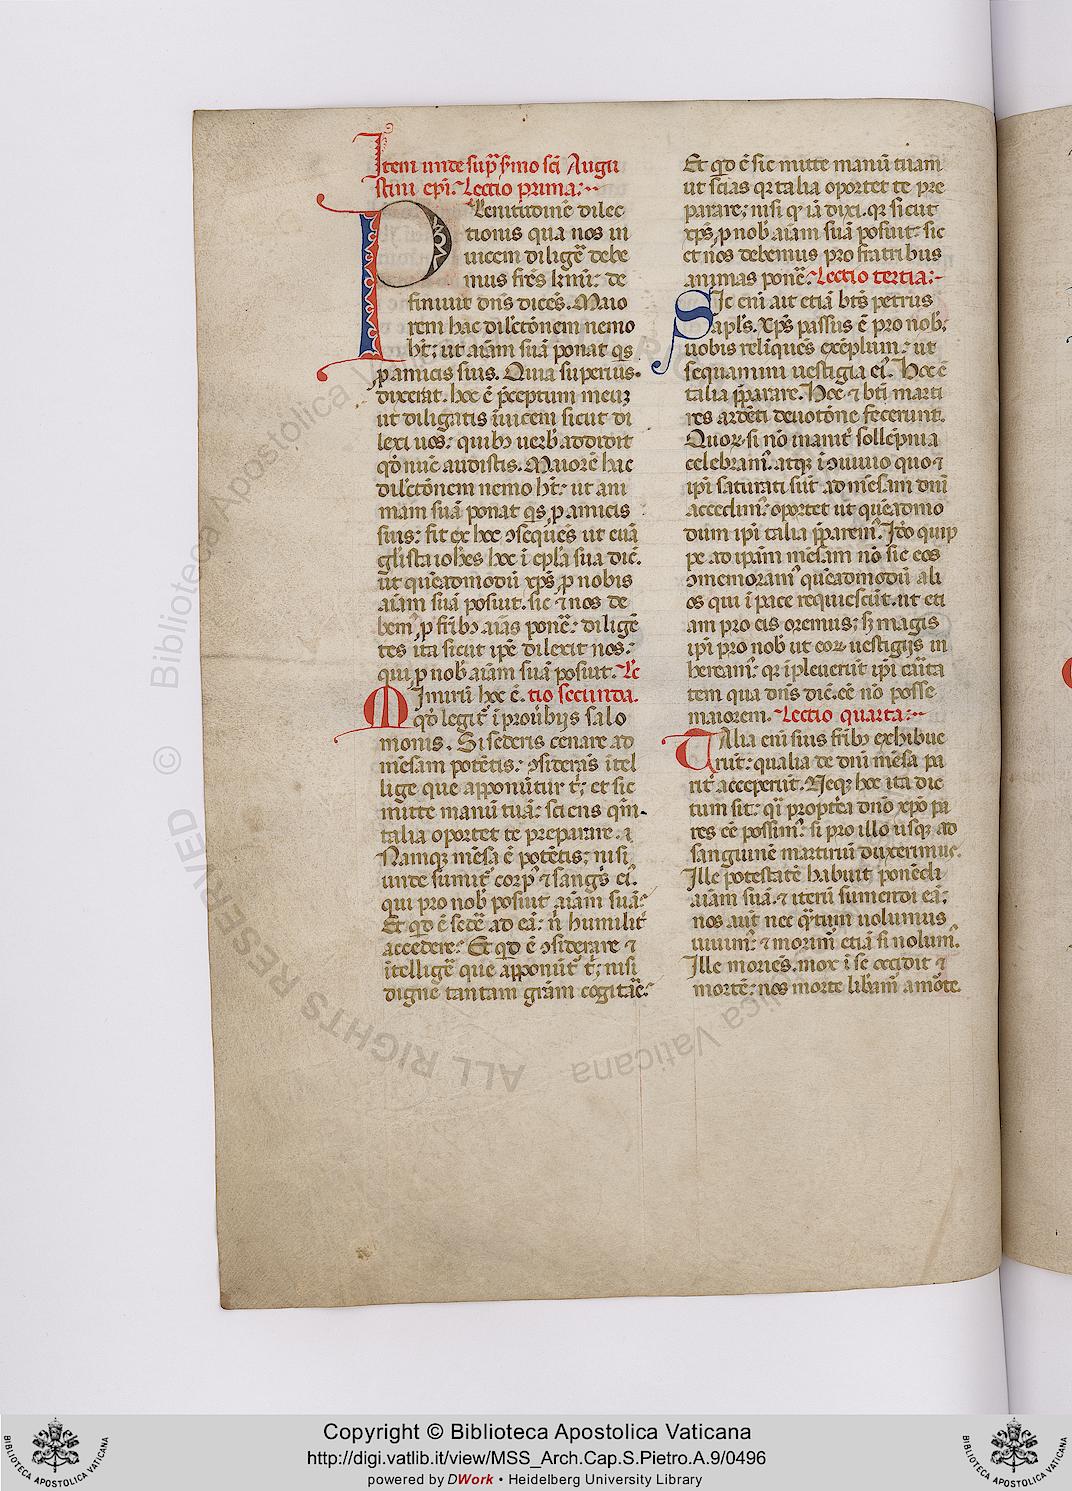 Item unde sup̄ s̄mo sc̄i Augu
stini ep̄i. Lectio prima:
Plenitudinē dilec
tionis qua nos in
uicem diligē debe
mus fr̄es kmi: de
finiuit dn̄s dicēs. Maio
rem hac dilc̄tōnem nemo
ht̄: ut aīam suā ponat qs
p amicis suis. Quia superius.
dixerat. hoc ē p̄ceptum meuȝ
ut diligatis īuicem sicut di
lexi uos: quibꝯ uerb̄ addidit
qd̄ nūc audistis. Maiorē hac
dilc̄tōnem nemo ht̄: ut ani
mam suā ponat qs p amicis
suis: fit ex hoc ꝯsequēs ut euā
glista ioh̄es hoc ī epl̄a sua diē.
ut quēadmodū xp̄s p nobis
aīam suā posiut. sic ⁊ nos de
bem᾽ p fr̄ibꝯ aīas ponē: diligē
tes ita sicut ip̄e dilexit nos:
qui p nob̄ aīam suā posiut. Lc̄
Nimirū hoc ē. tio secunda.
qd̄ legit᾽ ī prou̇biis salo
monis. Si sederis cenare ad
mēsam potētis: ꝯsiderās ītel
lige que apponūtur t᾽; et sic
mitte manū tuā: sciens qm̄
talia oportet te preparare.
Namqȝ mēsa ē potētis; nisi
unde sumit᾽ corp᾽ ⁊ sangs ei᾽.
qui pro nob̄ posiut aīam suā:
Et qd̄ ē sedē ad eā: n̄ humilit᾽
accedere: Et qd̄ ē ꝯsiderare ⁊
ītelligē que apponūt᾽ t᾽; nisi
digne tantam grām cogitāē:
Et qd̄ ē sic mitte manū tuam
ut scias qꝛ talia oportet te pre
parare; nisi qꝛ iā dixi. qꝛ sicut
xp̄s p nob̄ aīam suā posiut: sic
et nos debemus pro fratribus
animas ponē: Lectio tertia:
Sic enī ait etiā bt̄s petrus
apl̄s. xp̄s passus ē pro nob̄:
uobis relīquēs exēplum: ut
sequamini uestigia ei᾽. Hoc ē
talia p̄parare. Hoc ⁊ bt̄i marti
res ardēti deuotōne fecerunt.
Quoꝝ si nō inanit᾽ sollēpnia
celebram᾽. atqȝ ī ꝯuiuio quo ⁊
ip̄i saturati sūt ad mēsam dn̄i
accedim᾽: oportet ut quēadmo
dum ip̄i talia p̄parem᾽. Id̄o quip
pe ad ip̄am mēsam nō sic eos
ꝯmemoram᾽ quēadmodū ali
os qui ī pace requiescūt. ut eti
am pro eis oremus; sȝ magis
ip̄i pro nob̄ ut eoꝝ uestigijs in
hereām᾽: qꝛ īpleuerūt ip̄i cāita
tem qua dn̄s diē. eē nō posse
maiorem. Lectio quarta:
Talia enī suis fr̄ibꝯ exhibue
rūt: qualia de dn̄i mēsa pa
rit᾽ acceperūt. Neqȝ hoc ita dic
tum sit: qi proptēa dn̄o xp̄o pa
res eē possim᾽: si pro illo usqȝ ad
sanguinē martiriū duxerimus.
Ille potestatē habuit ponēdi
aīam suā. ⁊ iterū sumendi eā;
nos aut̄ nec qᷓtum uolumus
uiuim᾽: ⁊ morim᾽ etiā si nolum᾽.
Ille moriēs. mox ī se occidit ⁊
mortē: nos morte lib̄am᾽ a mōte
© Biblioteca Apostolica Vaticana
ALL RIGHTS RESERVED
Copyright © Biblioteca Apostolica Vaticana
http://digi.vatlib.it/view/MSS_Arch.Cap.S.Pietro.A.9/0496
powered by DWork • Heidelberg University Library
BIBLIOTECA APOSTOLICA VATICANA
BIBLIOTECA APOSTOLICA VATICANA